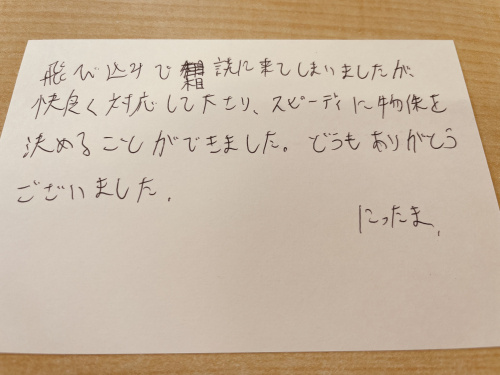 飛び込みで相談に来てしまいましたが、
快良く対応して下さり、スピーディに物件を
決めることができました。どうもありがとう
ございました。
にったま。